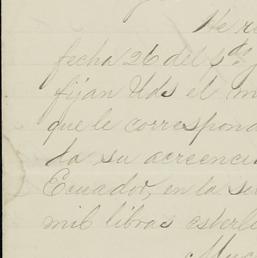 He re
fecha 26 del pdo
fijan Uds el m
que le correspond
da su acreenci
Ecuador, en la su
mil libras esterl
Muc